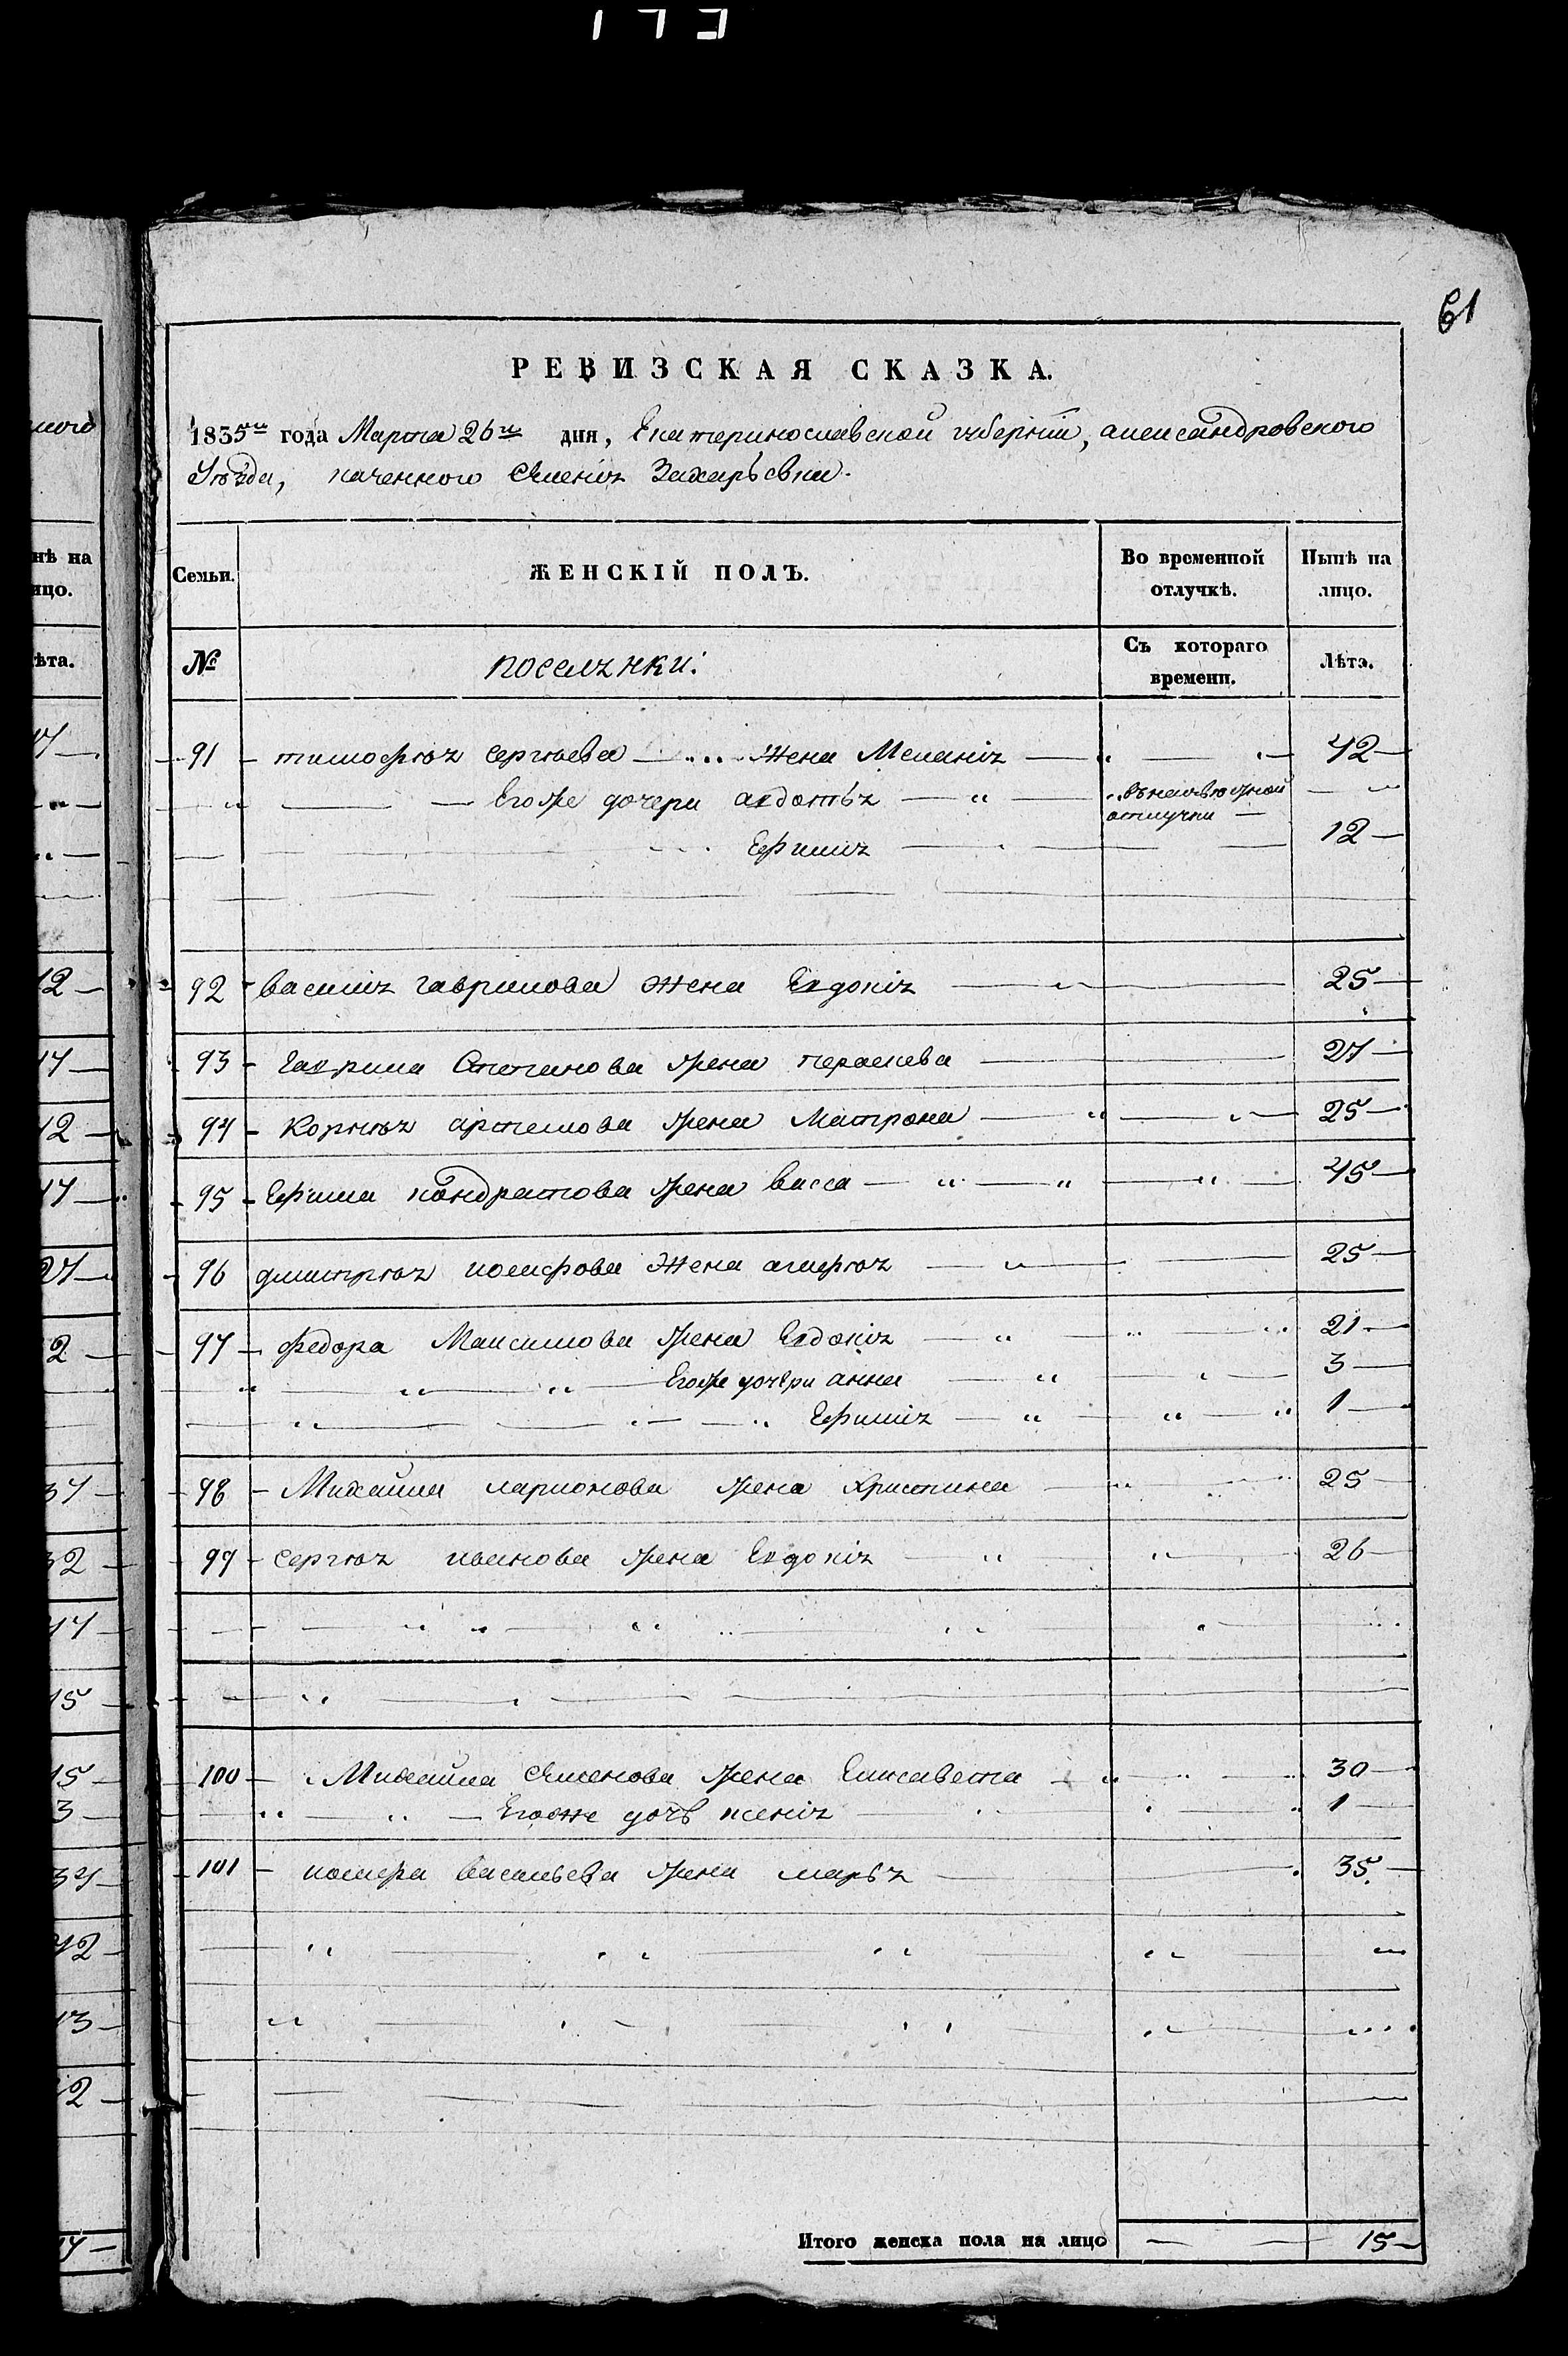 173
61
РЕВИЗСКАЯ СКАЗКА.
1835го года Марта 26го дня, Екатеринославской губернiи, александровского
Уѣзда, казенного Селенiя Захарьевки.
Семьи. ЖЕНСКIЙ ПОЛЪ. Во временной отлучкѣ. Нынѣ на лицо.
№ поселянки: Съ котораго времени. Лѣта.
91 тимофѣя сергѣева жена Меланiя 42
Егоже дочери авдотья въ неизвѣстной отлучки
Ефимiя 12
92 василiя гаврилова жена Евдокiя 25
93 гаврила Степанова жена параскева 27
94 Корнѣя артемова жена Матрона 25
95 Ефима кондратова жена васса 45
96 дмитрѣя иосифова жена агафѣя 25
97 федора Максимова жена Евдокiя 21
Егоже дочери анна 3
Ефимiя 1
98 Михайла ларионова жена христина 25
99 сергѣя иванова жена Евдокiя 26
100 Михайла Семенова жена Елисавета 30
Егоже дочь ксенiя 1
101 иосифа васильева жена марья 35
Итого женска пола на лицо 15